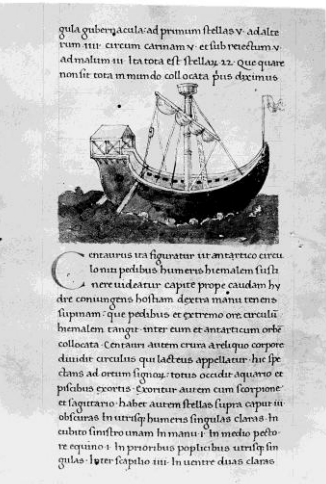 gula gubernacula: ad primum stellas v. ad alte
rum 1111. circum carinam v. et sub reiectum. v.
ad malum 111. Ita tota est stellar 22. Que quare
non sit tota in mundo collocata p̄us diximus
Centaurus ita figuratur ut antartico circu
lo niti pedibus humeris hiemalem susti
nere uideatur capite prope caudam hy
dre coniungens hostiam dextra manu tenens
supinam: que pedibus et extremo ore circulū
hiemalem tangit inter eum et antarticum orbē
collocata. Centauri autem crura a reliquo corpore
diuidit circulus qui lacteus appellatur. hic spe
ctans ad ortum signoꝝ. totus occidit aquario et
piscibus exortis. Exoritur autem cum scorpione
et sagittario. habet autem stellas supra caput 111
obscuras In utrisqꝫ humeris singulas claras. In
cubito sinistro unam In manu 1. In medio pecto
re equino 1. In prioribus poplicibus utrisqꝫ sin
gulas. Inter scapilio 1111. In uentre duas claras